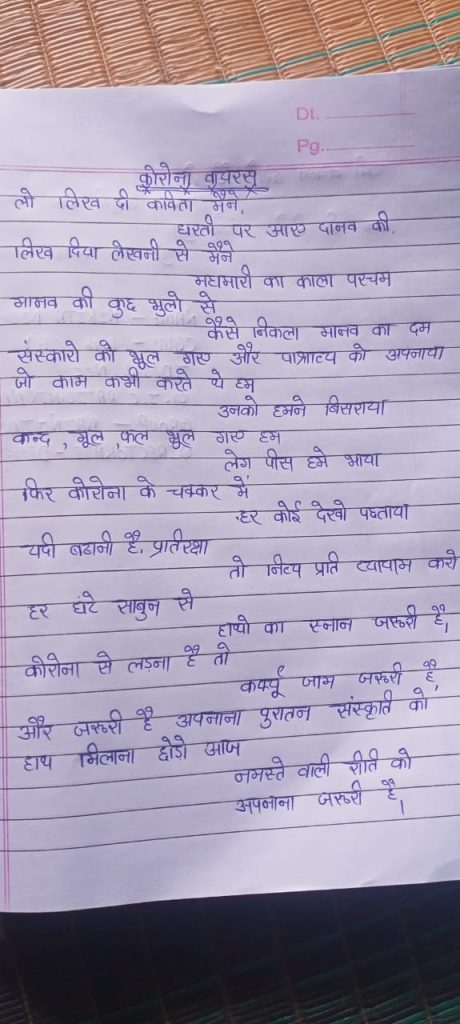 Dt.
Pg.
कोरोना वायरस
लो लिख दी कविता मैंने,
धरती पर आए दानव की.
लिख दिया लेखनी से मैंने
महामारी का काला परचम
मानव की कुछ भुलो से
कैसे निकला मानव का दम
संस्कारो को भूल गए और पाश्चात्य को अपनाया
जो काम कभी करते थे हम
उनको हमने बिसराया
कन्द, मूल, फल भूल गए हम
लेग पीस हमे भाया
फिर कोरोना के चक्कर में
हर कोई देखो पछताया
यदी बढानी है. प्रतिरक्षा
तो नित्य प्रति व्यायाम करो
हर घंटे साबुन से
हाथो का स्नान जरूरी है।
कोरोना से लड़ना है तो
कर्फ्यू जाम जरूरी है,
और जरूरी है अपनाना पुरातन संस्कृति को
हाथ मिलाना छोड़ो आज
नमस्ते वाली रीती को
अपनाना जरूरी है।